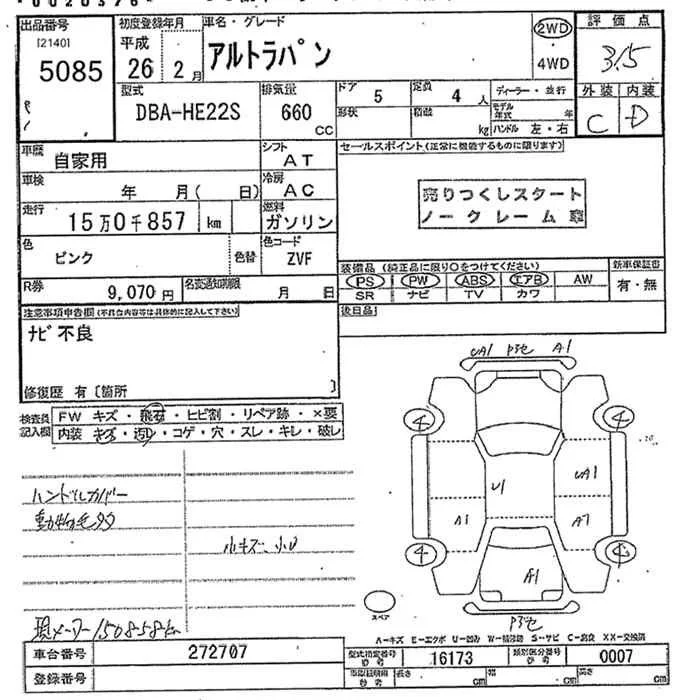 出品番号 初度登録年月 車名・グレード 評価点
[2140] 平成 アルトラパン 2WD 3.5
5085 26 2月 4WD 外装 内装
型式 排気量 ドア 5 定員 4 人 ディーラー・並行 C D
DBA-HE22S 660 cc 形状 積載 kg モデル年式 年
ハンドル 左・右
車歴 自家用 シフト AT セールスポイント(正常に機能するものに限ります)
車検 年 月( 日) 冷房 AC 売りつくしスタート
走行 15万0千857 km 燃料 ガソリン ノークレーム車
色 ピンク 色替 色コード ZVF
装備品(純正品に限り○をつけてください) 新車保証書
R券 9,070円 名変通知期限 月 日 PS PW ABS エアB AW 有・無
SR ナビ TV カワ
注意事項申告欄(不具合内容等は具体的に記入して下さい) 後日品
ナビ不良
修復歴 有〔箇所
検査員記入欄 FW キズ・飛石・ヒビ割・リペア跡・×要
内装 キズ・汚れ・コゲ・穴・スレ・キレ・破レ
UA1 A1
4 4
UA1
U1
A1 A7
ハンドルカバー
動物毛多
小キズ、小U
4 4
A1
スペア
現メーター150858km
A-キズ E-エクボ U-凹み W-補修跡 S-サビ C-腐食 XX-交換済
車台番号 272707 型式指定番号 参考 16173 類別区分番号 参考 0007
登録番号 参考 長さ cm 幅 cm 高さ cm